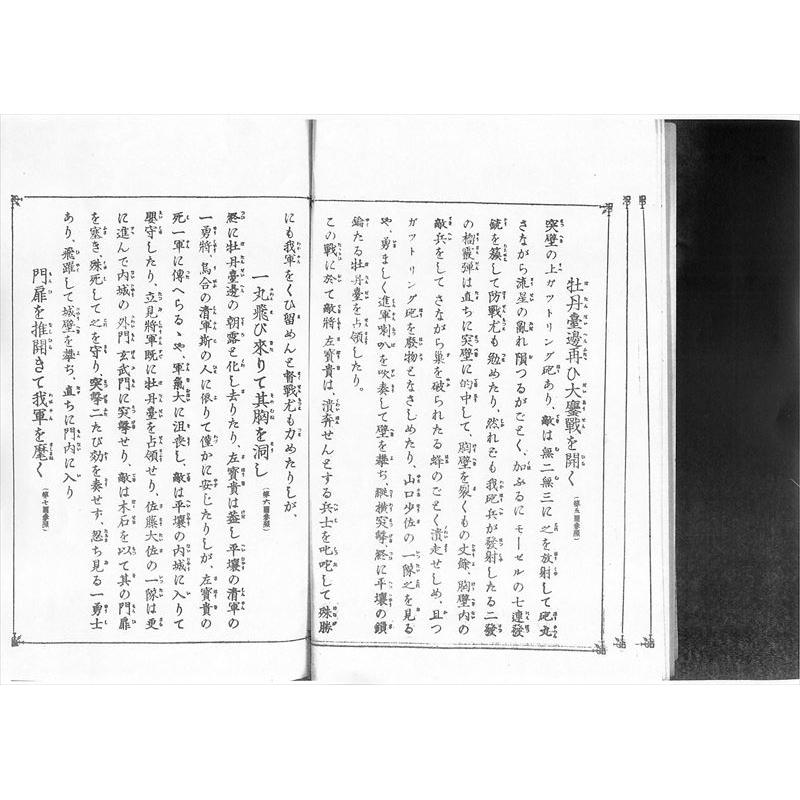 牡丹臺邊再ひ大鏖戰を開く（第五圖參照）
突壁の上ガツトリング砲あり、敵は無二無三に之を放射して砲丸
さながら流星の亂れ隕つるがごとく、加ふるにモーゼルの七連發
銃を簇して防戰尤も勉めたり、然れども我砲兵が發射したる二發
の榴霰彈は直ちに突壁に的中して、胸壁を裂くもの丈餘、胸壁内の
敵兵をして さながら巢を破られたる蜂のごとく潰走せしめ、且つ
ガツトリング砲を廢物となさしめたり、山口少佐の一隊之を見る
や、勇ましく進軍喇叭を吹奏して壁を攀ぢ、縱橫突擊終に平壤の鎖
鑰たる牡丹臺を占領したり。
この戰に於て敵將 左寶貴は 潰奔せんとする兵士を叱咤して 殊勝
にも我軍をくひ留めんと督戰尤も力めたりしが、
一丸飛び來りて其胸を洞し（第六圖參照）
終に牡丹臺邊の朝露と化し去りたり、左寶貴は蓋し平壤の清軍の
一勇將、烏合の清軍斯の人に依りて僅かに安じたりしが、左寶貴の
死一軍に傳へらるゝや、軍氣大に沮喪し、敵は平壤の内城に入りて
嬰守したり、立見將軍既に牡丹臺を占領せり、佐藤大佐の一隊は更
に進んで内城の外門 玄武門に突擊せり、敵は木石を以て其の門扉
を塞ぎ、殊死して之を守り、突擊二たび効を奏せず、忽ち見る一勇士
あり、飛躍して城壁を攀ぢ、直ちに門内に入り
門扉を推開きて我軍を麾く（第七圖參照）